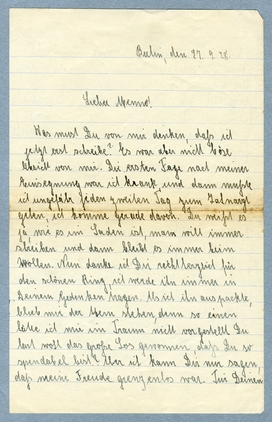 Berlin, den 27. 9. 28.
Lieber Menno!
Was musst Du von mir denken, daß ich
jetzt erst schreibe? Es war aber nicht Böse
von mir. Die ersten Tage nach meiner
Einsegnung war ich krank und dann mußte
ich ungefähr jeden zweiten Tag zum Zahnarzt
gehen, ich komme gerade davon. Du weißt es
ja wie es im ist, man will immer
schreiben und dann bleibt es immer beim
Wollen. Nun danke ich Dir recht herzlich für
den schönen Ring, ich werde ihn immer in
Deinem Gedenken tragen. Als ich ihn auspackte,
blieb mir der Atem stehen, denn so einen
hätte ich mir im Traum nicht vorgestellt. Du
hast wohl das große Los genommen, daß Du so
spendabel bist? Aber ich kann Dir nur sagen,
daß meine Freude grenzenlos war. Für Deinen